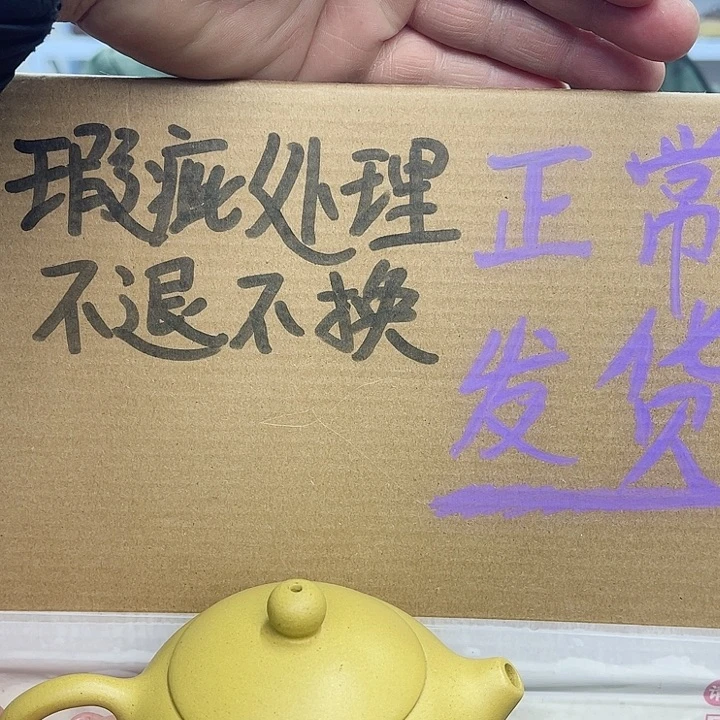 瑕疵处理
不退不换
正常
发货